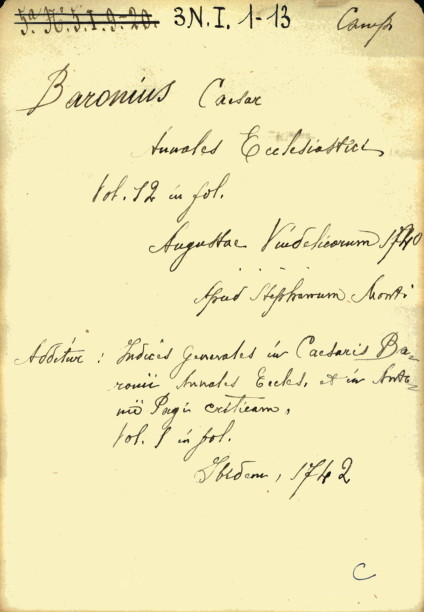 5ª N. 5. I. 9-20. 3 N. I. 1-13
Baronius Caesar
Annales Ecclesiastici
Vol. 12 in fol.
Augustae Vindelicorum 1740
Apud Stephanum Monti
Additur : Indices Generales in Caesaris Ba-
ronii Annales Eccles, et in Anto-
nii Pagi criticam,
Vol. 1 in fol.
Ibidem, 1742
C